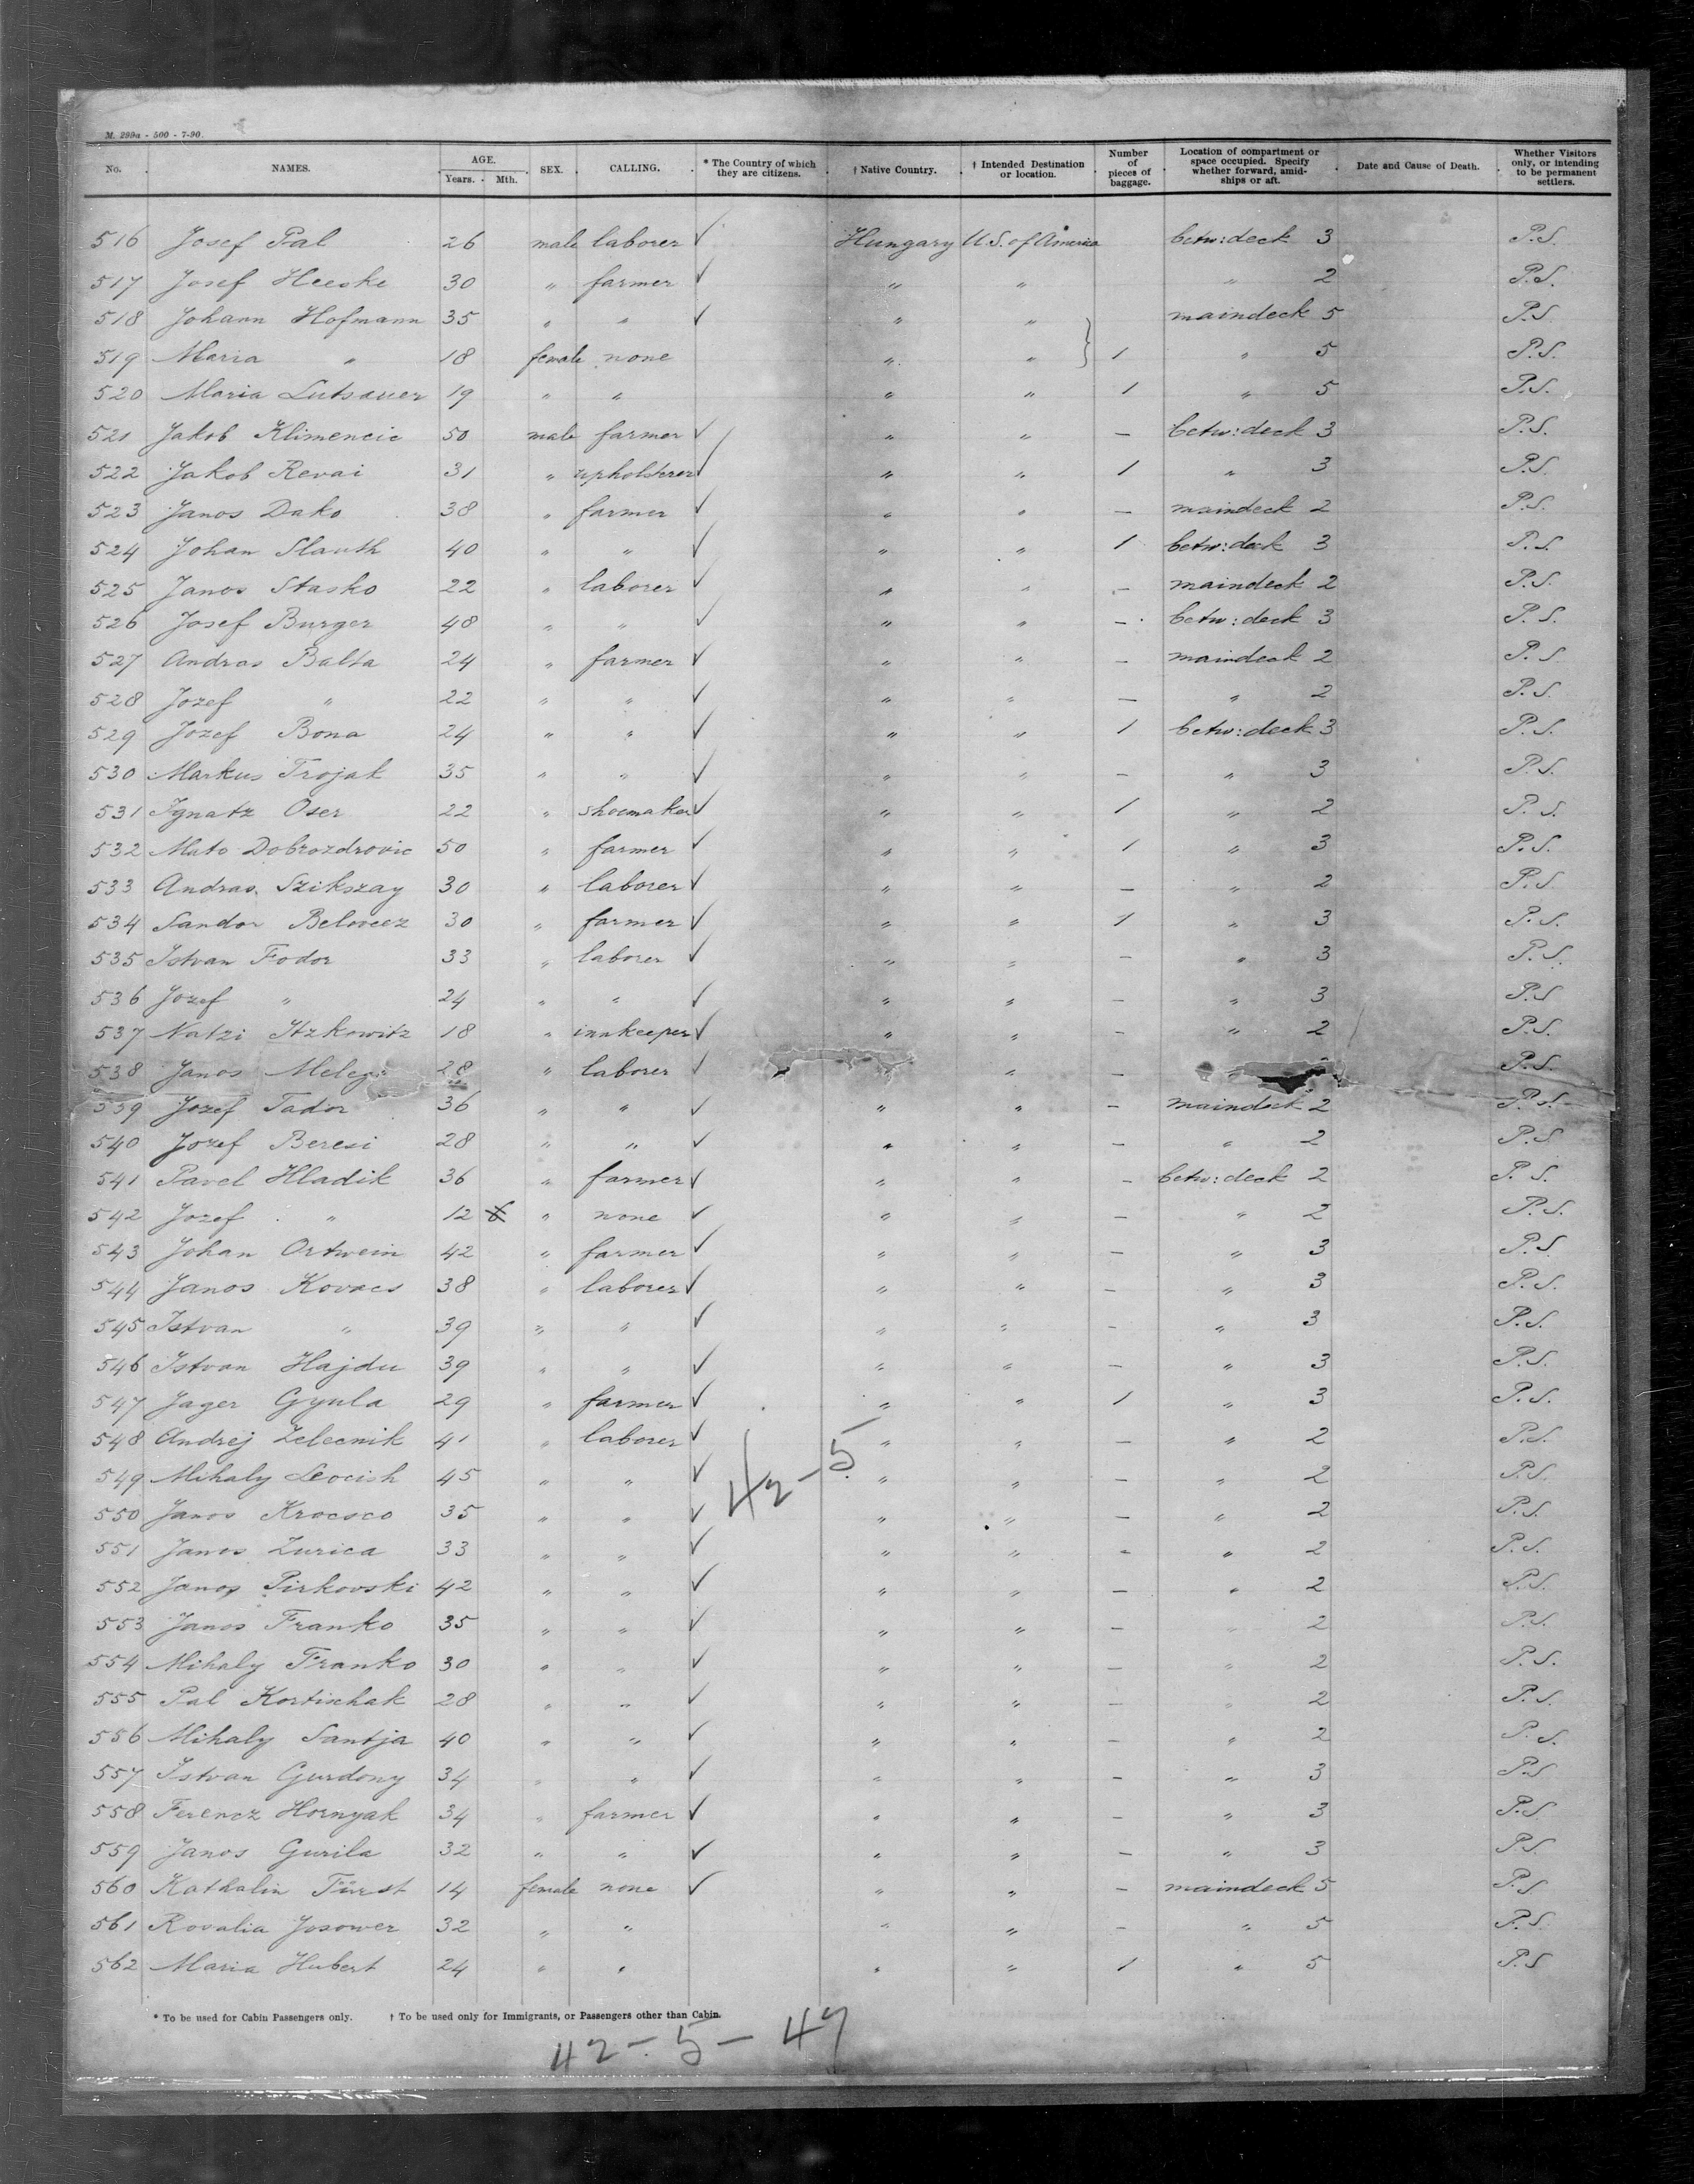 M. 299a - 500 - 7-90.
No. NAMES. AGE. Years. Mth. SEX. CALLING. * The Country of which they are citizens. † Native Country. † Intended Destination or location. Number of pieces of baggage. Location of compartment or space occupied. Specify whether forward, amidships or aft. Date and Cause of Death. Whether Visitors only, or intending to be permanent settlers.
516 Josef Pal 26 male laborer ✓ Hungary U.S. of America betw: deck 3 P.S.
517 Josef 30 " farmer ✓ " " " 2 P.S.
518 Johann Hofmann 35 " " ✓ " " maindeck 5 P.S.
519 Maria " 18 female none " " } 1 " 5 P.S.
520 Maria Lutsauer 19 " " " " 1 " 5 P.S.
521 Jakob Klimencic 50 male farmer ✓ " " — betw: deck 3 P.S.
522 Jakob Revai 31 " upholsterer ✓ " " 1 " 3 P.S.
523 Janos Dako 38 " farmer ✓ " " — maindeck 2 P.S.
524 Johan Slauth 40 " " ✓ " " 1 betw: deck 3 P.S.
525 Janos Stasko 22 " laborer ✓ " " — maindeck 2 P.S.
526 Josef Burger 48 " " ✓ " " — betw: deck 3 P.S.
527 Andras Balta 24 " farmer ✓ " " — maindeck 2 P.S.
528 Jozef " 22 " " ✓ " " — " 2 P.S.
529 Jozef Bona 24 " " ✓ " " 1 betw: deck 3 P.S.
530 Markus Trojak 35 " " ✓ " " — " 3 P.S.
531 Ignatz Oser 22 " shoemaker ✓ " " 1 " 2 P.S.
532 Mato Dobrozdrovic 50 " farmer ✓ " " 1 " 3 P.S.
533 Andras Szikszay 30 " laborer ✓ " " — " 2 P.S.
534 Sandor Belovcez 30 " farmer ✓ " " 1 " 3 P.S.
535 Istvan Fodor 33 " laborer ✓ " " — " 3 P.S.
536 Jozef " 24 " " ✓ " " — " 3 P.S.
537 Natzi Itzkowitz 18 " innkeeper ✓ " " — " 2 P.S.
538 Janos 28 " laborer ✓ " — P.S.
539 Jozef Tador 36 " " ✓ " " — maindeck 2 P.S.
540 Jozef Beresi 28 " " ✓ " " — " 2 P.S.
541 Pavel Hladik 36 " farmer ✓ " " — betw: deck 2 P.S.
542 Jozef " 12 " none ✓ " " — " 2 P.S.
543 Johan Ortwein 42 " farmer ✓ " " — " 3 P.S.
544 Janos Kovacs 38 " laborer ✓ " " — " 3 P.S.
545 Istvan " 39 " " ✓ " " — " 3 P.S.
546 Istvan Hajdu 39 " " ✓ " " — " 3 P.S.
547 Jager Gyula 29 " farmer ✓ " " 1 " 3 P.S.
548 Andrej Zelecnik 41 " laborer ✓ " " — " 2 P.S.
42-5
549 Mihaly Seocish 45 " " ✓ " " — " 2 P.S.
550 Janos Krocsco 35 " " ✓ " " — " 2 P.S.
551 Janos Zurica 33 " " ✓ " " - " 2 P.S.
552 Janos Pirkovski 42 " " ✓ " " — " 2 P.S.
553 Janos Franko 35 " " ✓ " " — " 2 P.S.
554 Mihaly Franko 30 " " ✓ " " — " 2 P.S.
555 Pal Kortischak 28 " " ✓ " " — " 2 P.S.
556 Mihaly Santja 40 " " ✓ " " — " 2 P.S.
557 Istvan Gurdony 34 " " ✓ " " — " 3 P.S.
558 Ferencz Hornyak 34 " farmer ✓ " " — " 3 P.S.
559 Janos Gurila 32 " " ✓ " " — " 3 P.S.
560 Kathalin Fürst 14 female none ✓ " " — maindeck 5 P.S.
561 Rosalia Josower 32 " " " " — " 5 P.S.
562 Maria Hubert 24 " " " " 1 " 5 P.S
* To be used for Cabin Passengers only. † To be used only for Immigrants, or Passengers other than Cabin.
42-5-47